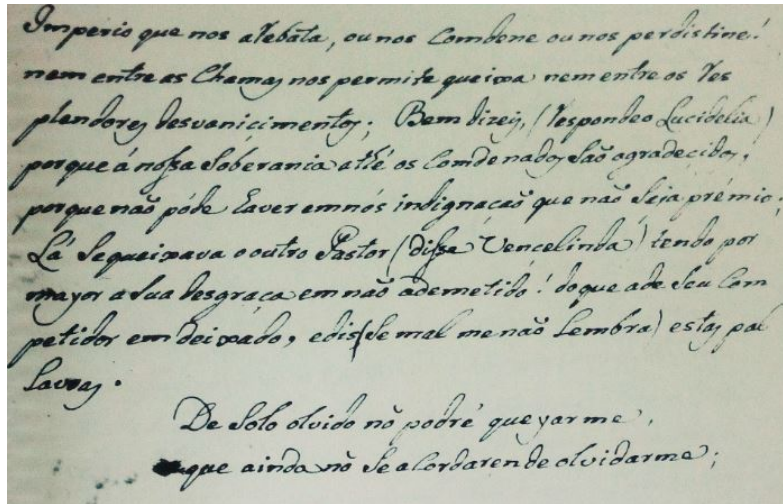 Imperio que nos arebata, ou nos Comdene ou nos perdistine!
nem entre as Chamas nos permite queixa nem entre os res
plandores desvanicimentos; Bem dizeis, (respondeo Lucidelia)
porque á nossa Soberania athé os Comdenados São agradecidos,
porque não póde Eaver em nós indignacaõ que não Seja prémio:
Lá Se queixava o outro Pastor (disse Vencelinda) tendo por
mayor a Sua desgraça em não ademetido! do que a de Seu Com
petidor em deixado, e dis (Se mal me não Lembra) estas pal
lavras.
De Solo olvido nõ podré queyarme,
que ainda nõ Se acordaren de olvidarme;